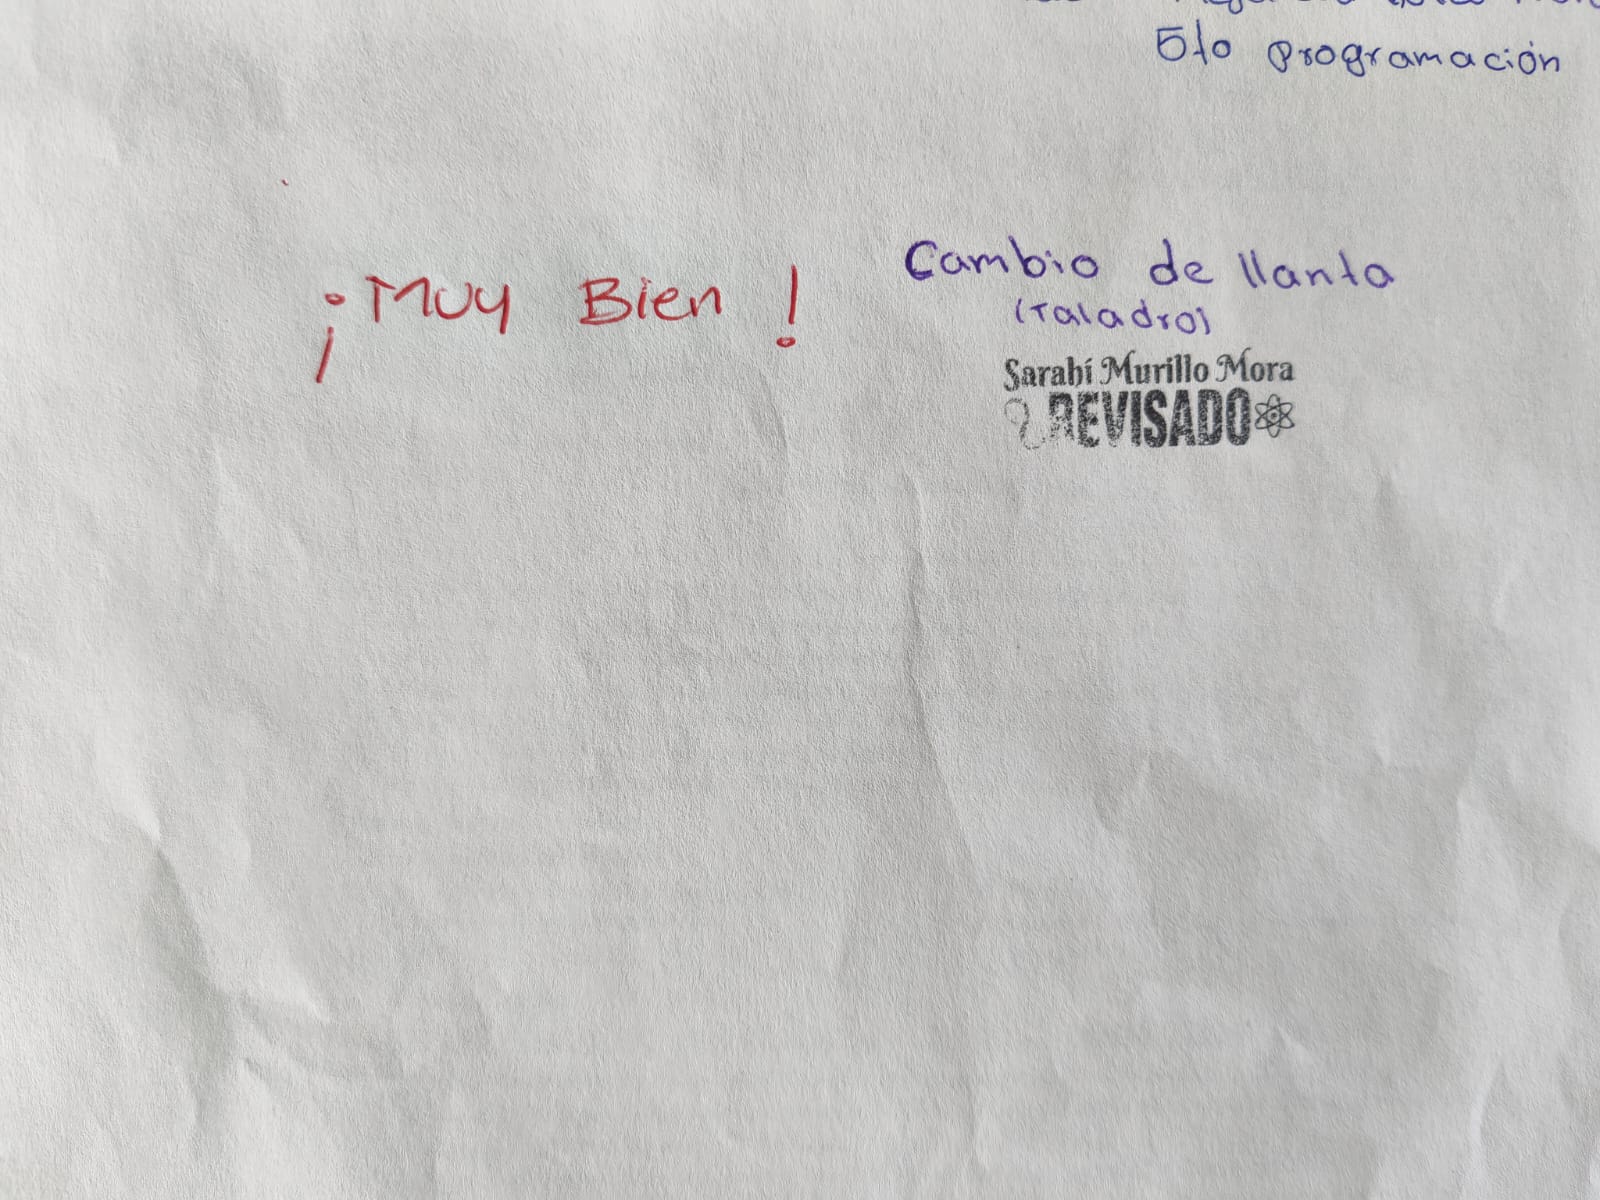 5to programación
¡Muy Bien!
Cambio de llanta
(Taladro)
Sarahí Murillo Mora
REVISADO